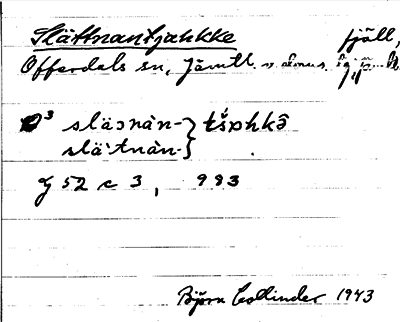 Slättnantjahkke fjäll,
Offerdals sn, Jämtl.
slaɔnàn-} tšɒhkɜ̂
slä`tnàn-}
g 52 c 3, 983
Björn Collinder 1943